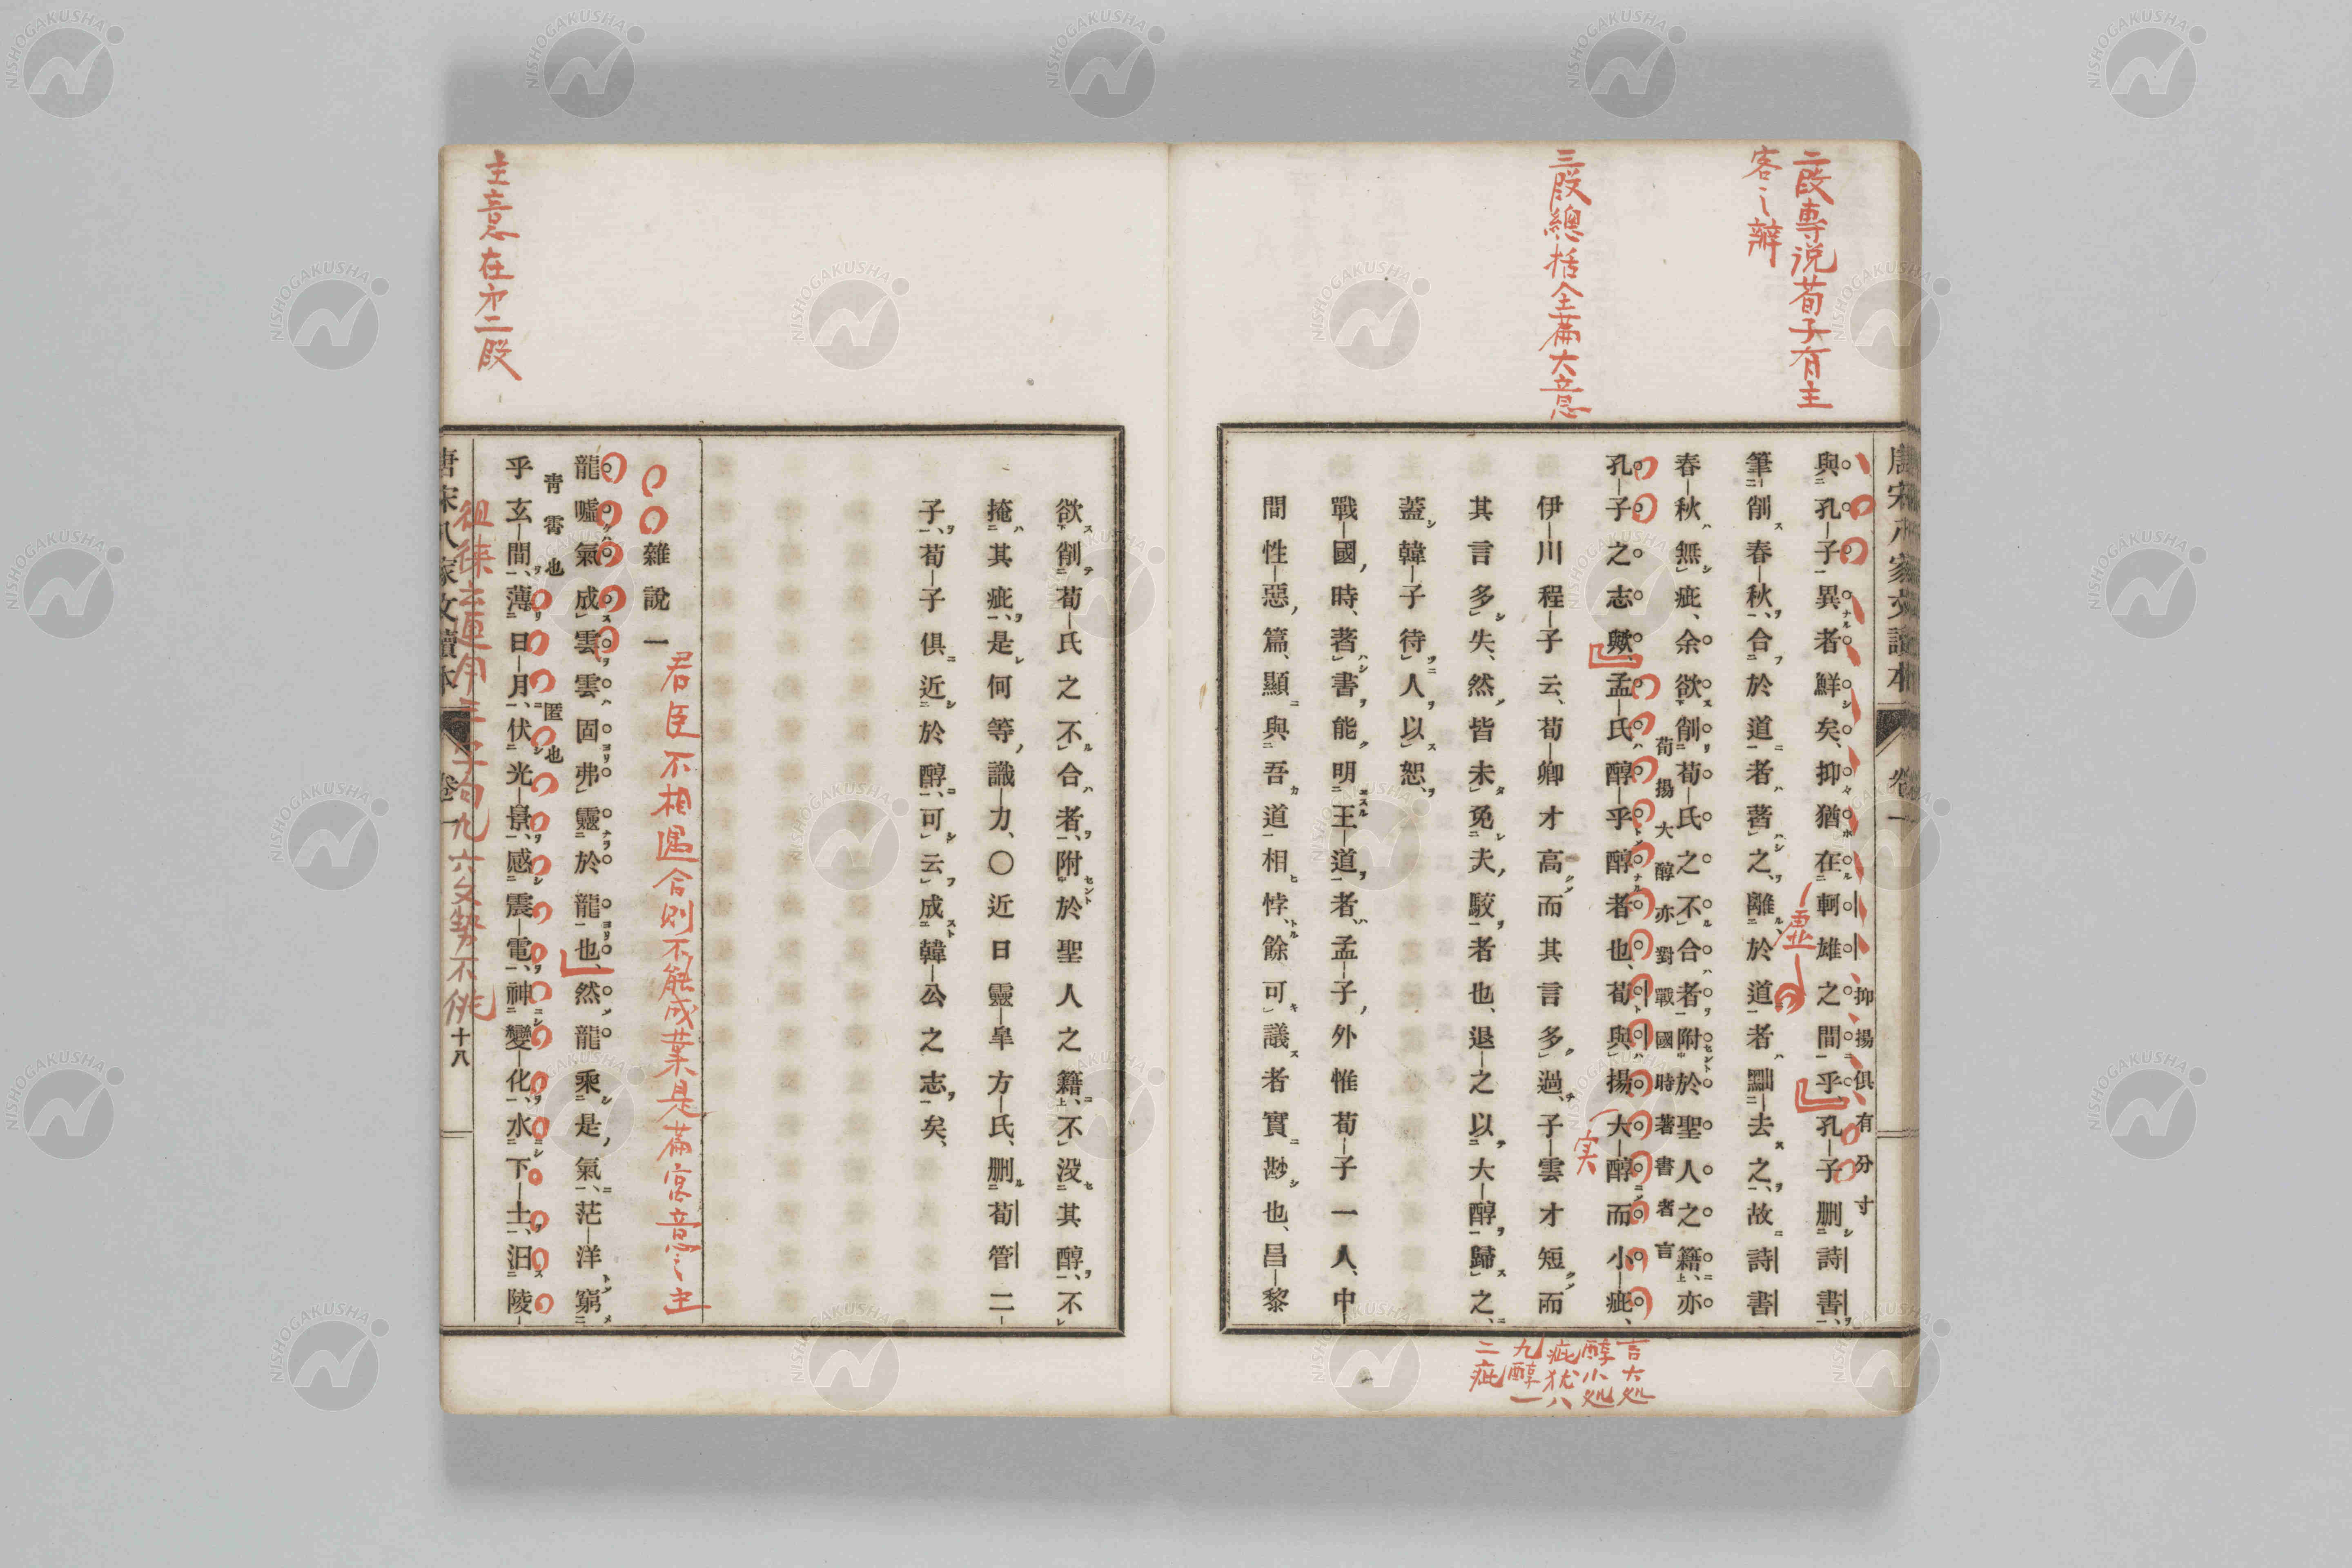 二段專说荀子有主
客之辨
三段總括全篇大意
唐宋八家文讀本 卷一
與孔子異者鮮矣、抑猶在軻雄之間乎、孔子刪詩書、
抑揚俱有分寸
筆削春秋、合於道者著之、離於道者黜去之、故詩書
虚
春秋無疵、余欲削荀氏之不合者、附於聖人之籍、亦
荀揚大醇亦對戰國時著書者言
孔子之志歟、孟氏醇乎醇者也、荀與揚大醇而小疵、
实
伊川程子云、荀卿才高而其言多過、子雲才短而
其言多失、然皆未免夫駁者也、退之以大醇歸之、
蓋韓子待人以恕、
戰國時、著書能明王道者、孟子外惟荀子一人、中
間性惡篇、顯與吾道相悖、餘可議者實尟也、昌黎
言大処
醇小処
疵犹八
九醇一
二疵
欲削荀氏之不合者、附於聖人之籍、不沒其醇、不
掩其疵、是何等識力、〇近日靈皐方氏、刪荀管二
子、荀子俱近於醇、可云成韓公之志矣、
君臣不相遇合則不能成業是篇寓意之主
雜說一
龍噓氣成雲雲固弗靈於龍也、然龍乘是氣、茫洋窮
靑霄也 匿也
乎玄間、薄日月、伏光景、感震電、神變化、水下土、汩陵
主意在第二段
唐宋八家文讀本 卷一 十八
徂徠云連用三字句九六文勢不佻